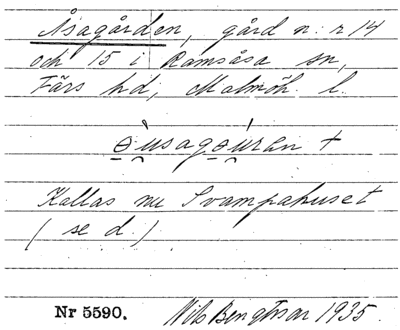 Åsagården, gård n:r 14
och 15 i Ramsåsa sn,
Färs hd, Malmöh. l.
ɵ̀usagɵ̀uran +
Kallas nu Svampahuset
( se d. )
Nr 5590. Nils Bengtsson 1935